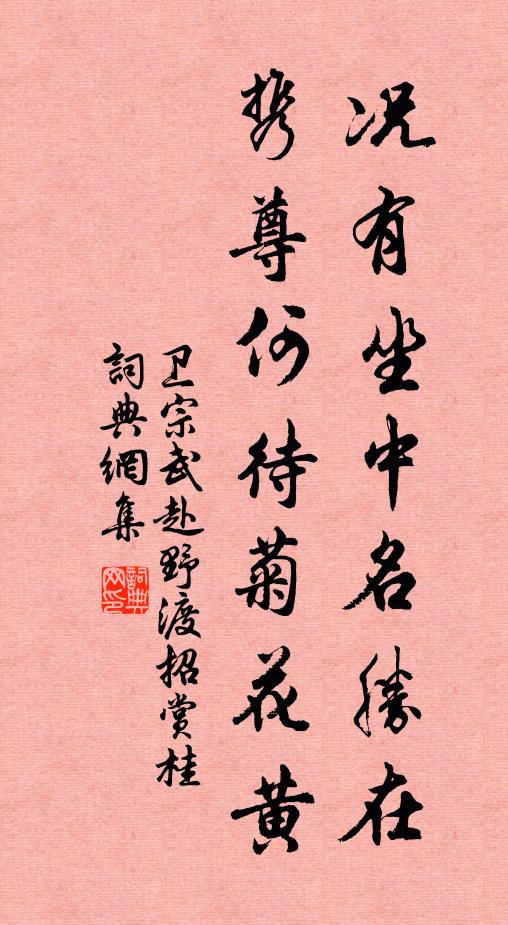 况有坐中名胜在
携尊何待菊花黄
卫宗武赴野渡招赏桂
詞典網集
詞典网印